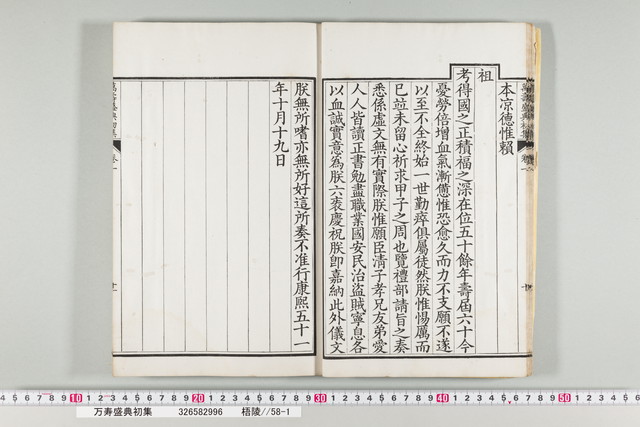 本凉德惟賴
祖
考得國之正積福之深在位五十餘年壽屆六十今
憂勞倍增血氣漸憊惟恐愈久而力不支願不遂
以至不全終始一世勤瘁俱屬徒然朕惟惕厲而
已竝未留心祈求甲子之周也覽禮部請旨之奏
悉係虛文無有實際朕惟願臣清子孝兄友弟愛
人人皆讀正書勉盡職業國安民治盜賊寧息各
以血誠實意為朕六袠慶祝朕卽嘉納此外儀文
朕無所嗜亦無所好這所奏不准行康熙五十一
年十月十九日
万寿盛典初集 326582996 梧陵//58-1